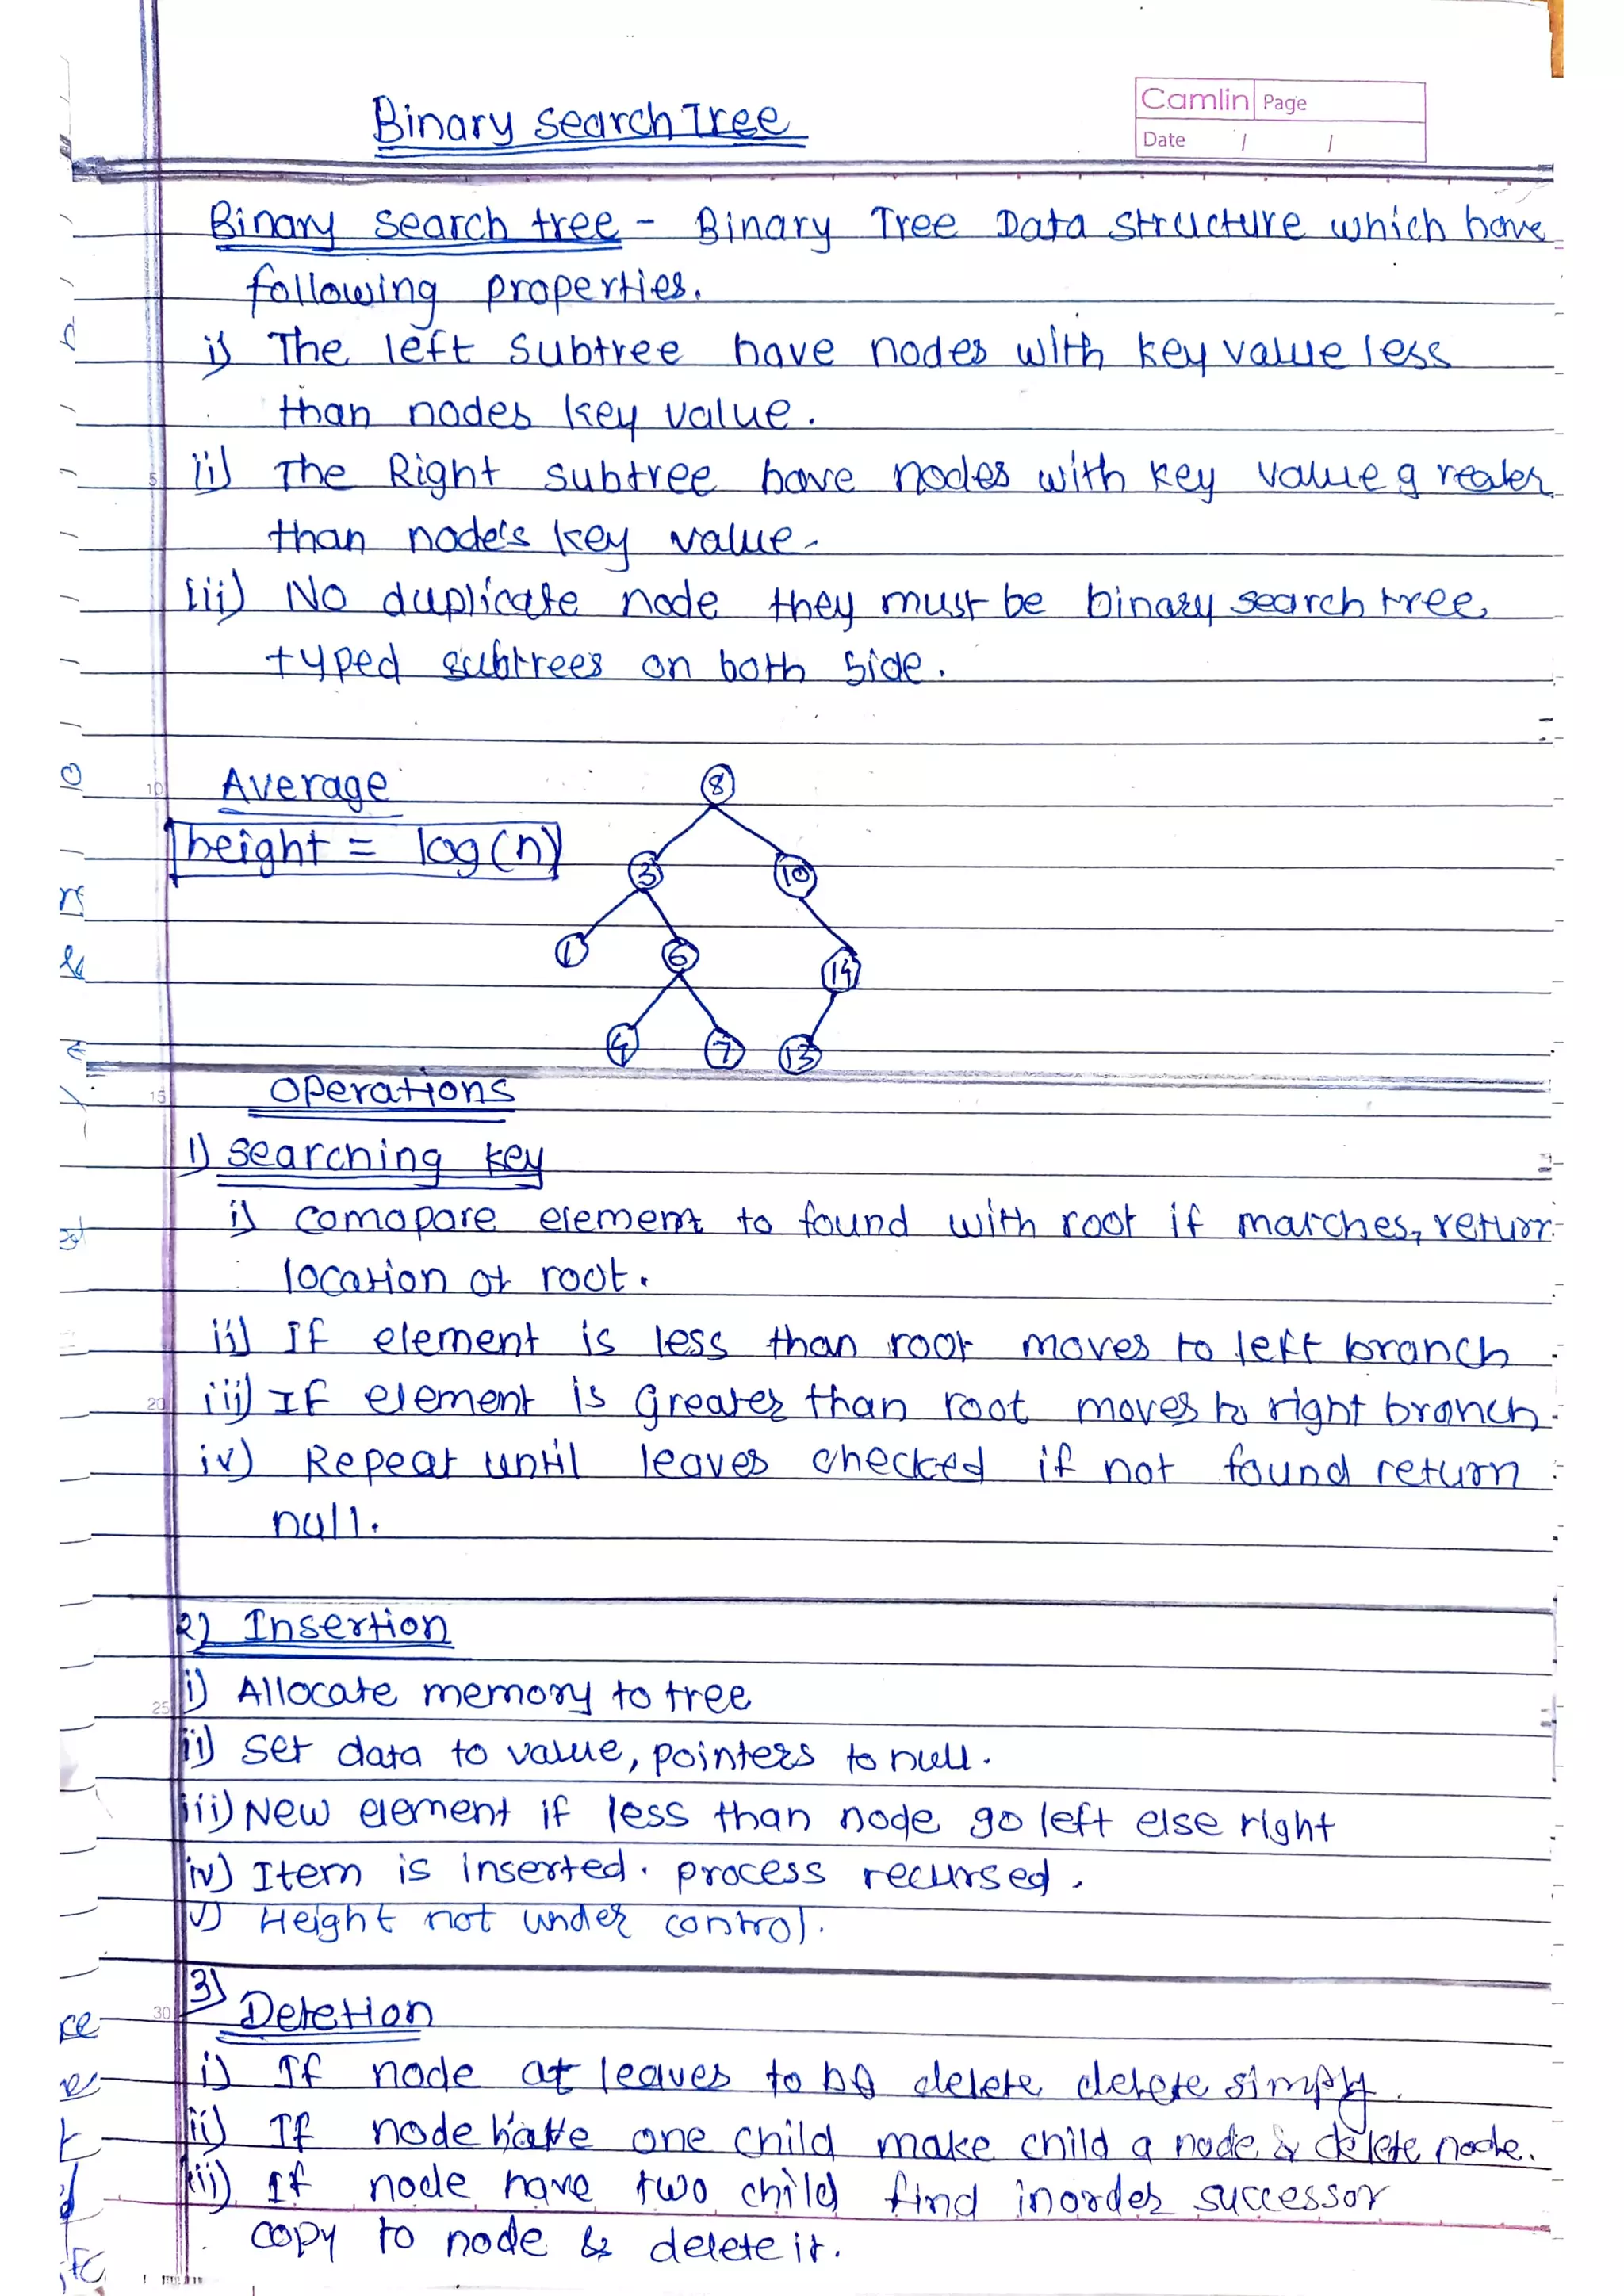 Binary search Tree
Camlin Page
Date / /
Binary search tree - Binary Tree Data structure which have
following properties.
i) The left subtree have nodes with key value less
than nodes key value.
ii) The Right subtree have nodes with key value greater
than node's key value.
iii) No duplicate node they must be binary search tree
typed subtrees on both side.
Average
height = log(n)
8
3 10
1 6 14
4 7 13
Operations
1) searching key
i) comapare element to found with root if matches, return
location of root.
ii) If element is less than root moves to left branch
iii) If element is greater than root moves to right branch
iv) Repeat until leaves checked if not found return
null.
2) Insertion
i) Allocate memory to tree
ii) set data to value, pointers to null.
iii) New element if less than node go left else right
iv) Item is inserted. process recursed.
v) Height not under control.
3) Deletion
i) If node at leaves to be delete delete simply.
ii) If node have one child make child a node & delete node.
iii) If node have two child find inorder successor
copy to node & delete it.